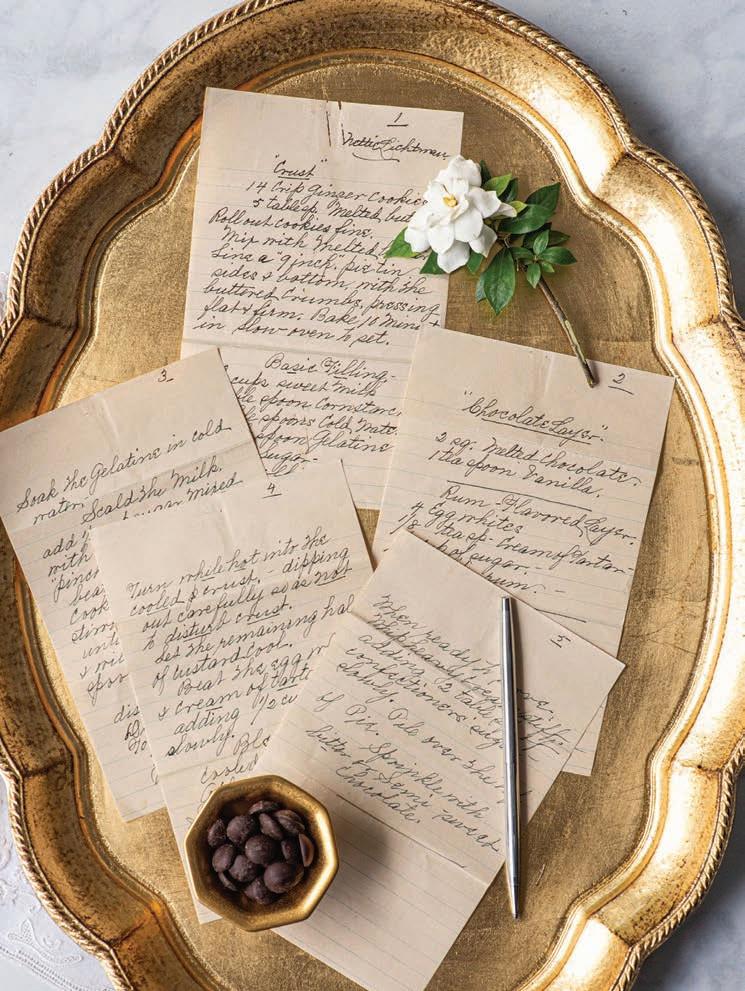 1
Nettie Lichtman
"Crust"
14 Crisp Ginger Cookie
5 tablesp. Melted but
Roll out cookies fine.
Mix with Melted
Line a 9 inch pie tin
sides & bottom, with the
buttered Crumbs, pressing
flat & firm. Bake 10 Min
in slow oven to set.
Basic Filling-
cups sweet Milk
le spoon Cornstarc
le spoons Cold Wate
spoon Gelatine
Sugar
2
"Chocolate Layer".
2 sq. Melted Chocolate.
1 tea spoon Vanilla.
Rum-Flavored Layer.
4 Egg whites
1/8 teasp. Cream of Tartar
sugar.-
rum.-
3
Soak the Gelatine in cold
water. Scald the Milk.
add
mixed
with
"pinch
bea
Cook
stirr
unt
spoo
dis
4
Turn while hot into the
cooled crust. - dipping
out carefully so as not
to disturb crust.
Let the remaining hal
of custard Cool.
Beat the egg
& cream of tarta
adding 1/2 cu
slowly.
5
When ready
adding 2 table
confectioners' sugar
slowly. Pile over the
of Pie.
Sprinkle with
bitter or Semi sweet
Chocolate.